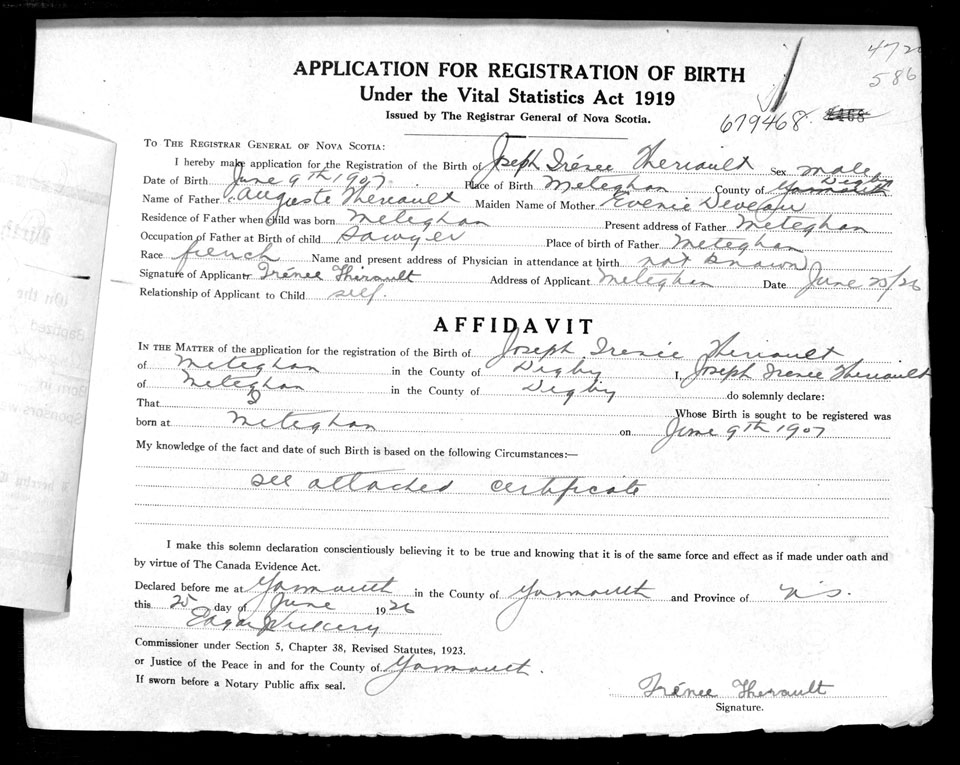 472
586
APPLICATION FOR REGISTRATION OF BIRTH
Under the Vital Statistics Act 1919
Issued by The Registrar General of Nova Scotia.
679468
TO THE REGISTRAR GENERAL OF NOVA SCOTIA:
I hereby make application for the Registration of the Birth of Joseph Irénee Theriault Sex male
Date of Birth June 9th 1907. Place of Birth Meteghan County of Yarmouth Digby
Name of Father Auguste Theriault Maiden Name of Mother Evenie Deveau
Residence of Father when child was born Meteghan Present address of Father Meteghan
Occupation of Father at Birth of child Sawyer Place of birth of Father Meteghan
Race french Name and present address of Physician in attendance at birth not known
Signature of Applicant Irénee Thirault Address of Applicant Meteghan Date June 25/26
Relationship of Applicant to Child self.
AFFIDAVIT
IN THE MATTER of the application for the registration of the Birth of Joseph Irenée Theriault
of Meteghan in the County of Digby I, Joseph Irenee Theriault
of Meteghan in the County of Digby do solemnly declare:
That I Whose Birth is sought to be registered was
born at Meteghan on June 9th 1907
My knowledge of the fact and date of such Birth is based on the following Circumstances:—
see attached certificate
I make this solemn declaration conscientiously believing it to be true and knowing that it is of the same force and effect as if made under oath and
by virtue of The Canada Evidence Act.
Declared before me at Yarmouth in the County of Yarmouth and Province of N.S.
this 25 day of June 1926
Edgar Vickery
Commissioner under Section 5, Chapter 38, Revised Statutes, 1923.
or Justice of the Peace in and for the County of Yarmouth.
If sworn before a Notary Public affix seal.
Irénee Therault
Signature.